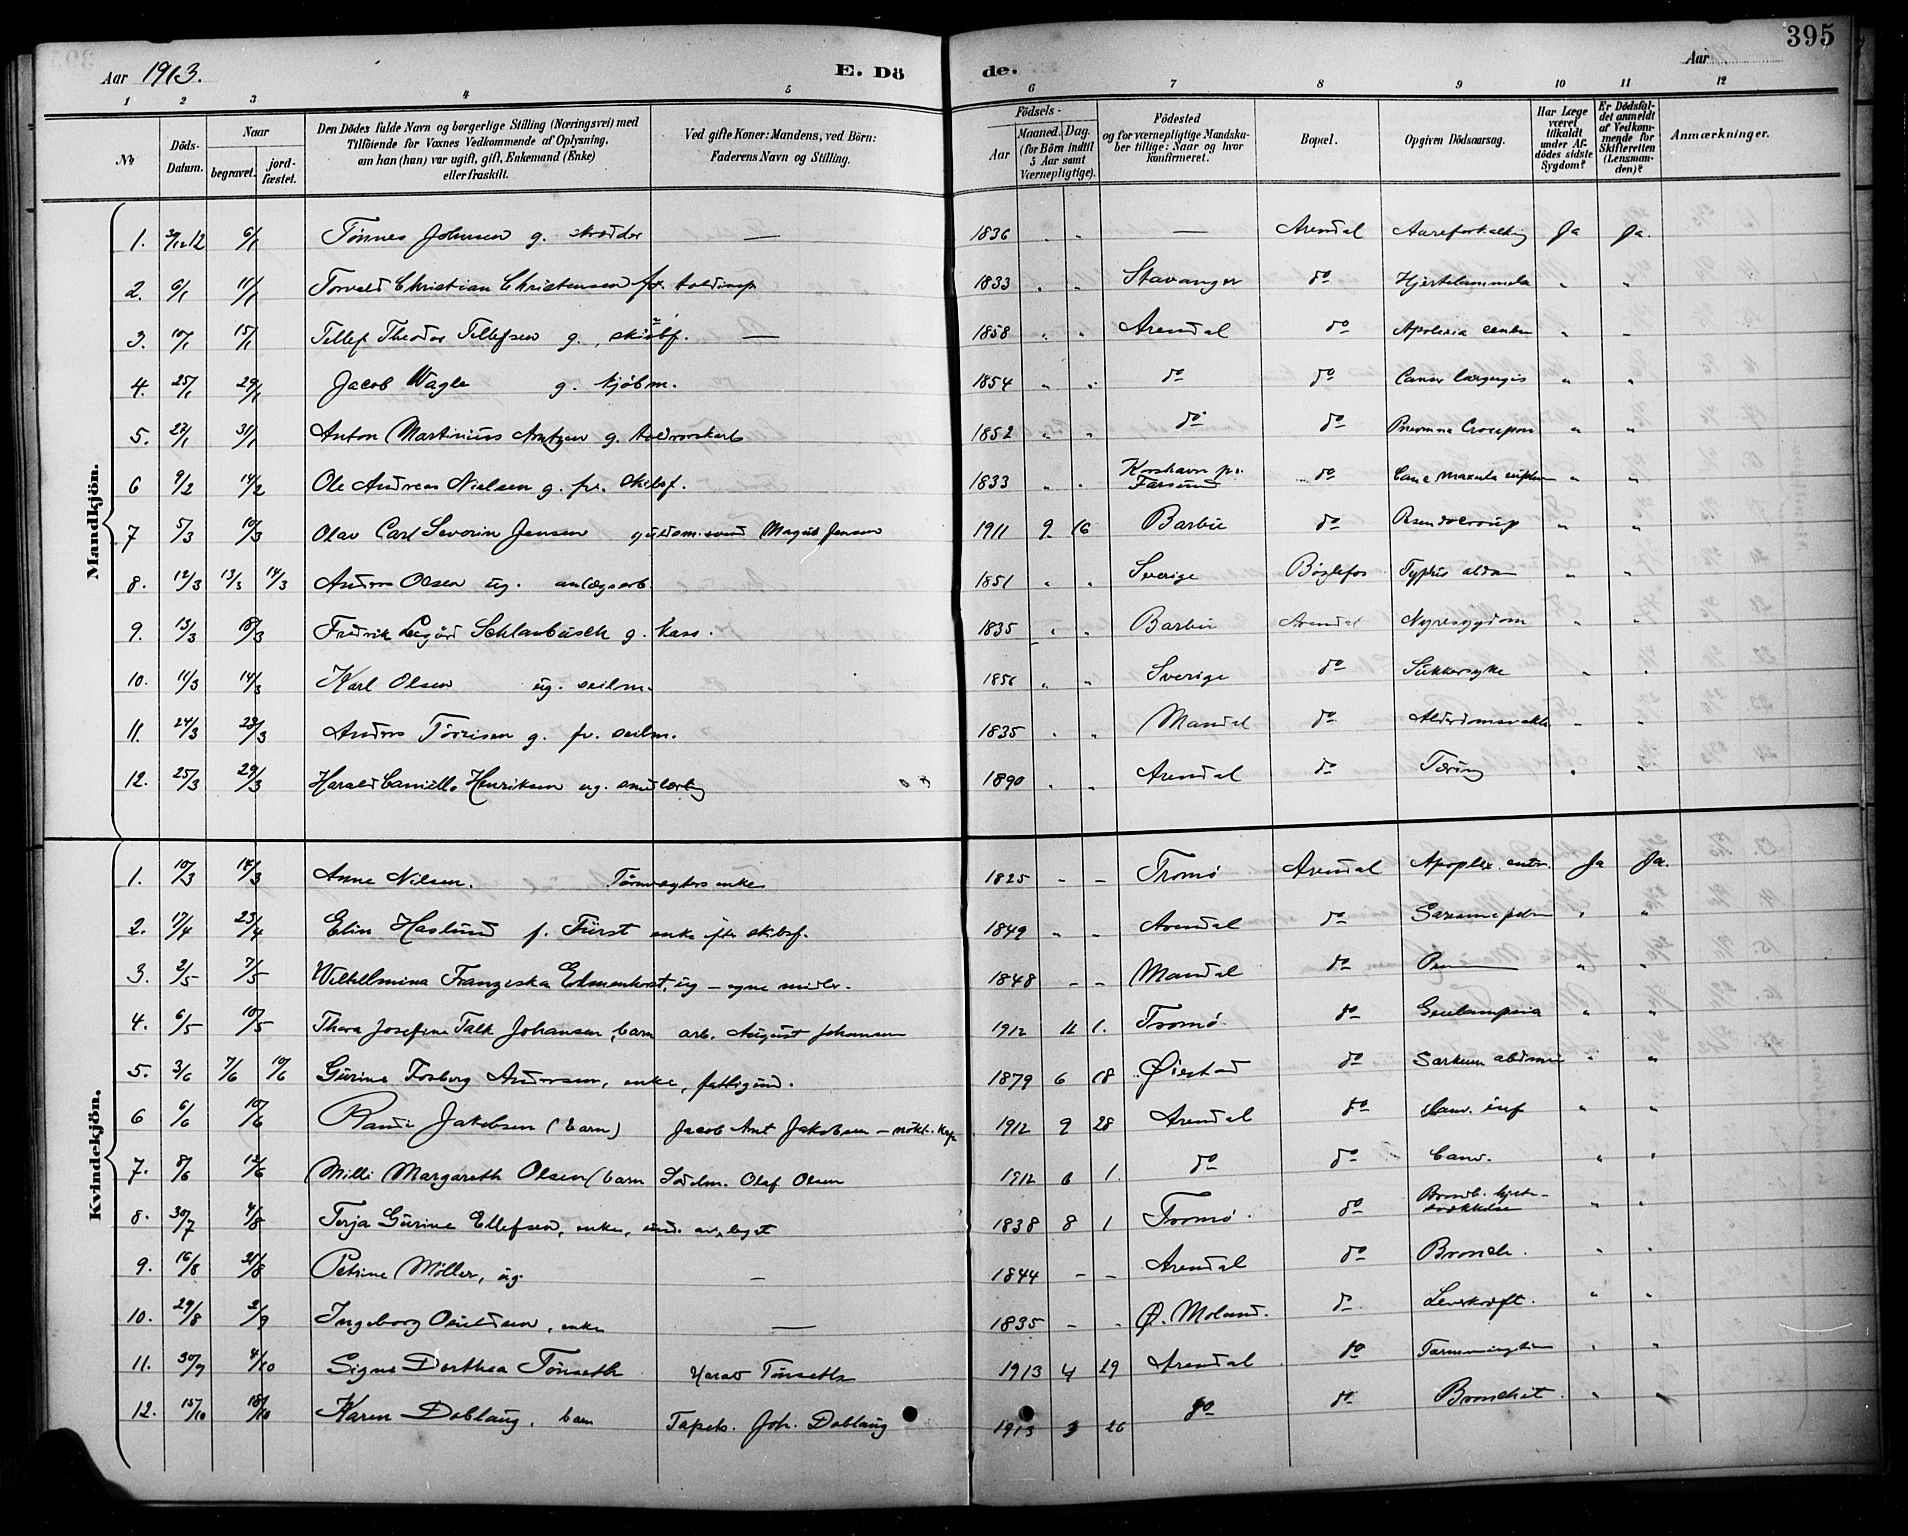 395
Aar 1913. E. Dö de. Aar
1 2 3 4 5 6 7 8 9 10 11 12
No Döds-Datum. Naar begravet. jord-fæstet. Den Dödes fulde Navn og borgerlige Stilling (Næringsvei) med Tilföiende for Voxnes Vedkommende af Oplysning, om han (hun) var ugift, gift, Enkemand (Enke) eller fraskilt. Ved gifte Koner: Mandens, ved Börn: Faderens Navn og Stilling. Födsels- Aar Maaned. Dag. (for Börn indtil 5 Aar samt Værnepligtige). Födested og for værnepligtige Mandskaber tillige: Naar og hvor konfirmeret. Bopæl. Opgiven Dödsaarsag. Har Læge været tilkaldt under Afdödes sidste Sygdom? Er Dödsfaldet anmeldt af Vedkommende for Skifteretten (Lensmanden)? Anmærkninger.
Mandkjön.
1. 30/12 12 6/1 Tönnes Johnsen g. skrædder — 1836 " " — Arendal Aareforkalkng Ja Ja.
2. 6/1 11/1 Torvald Christian Christensen toldinsp 1833 " " Stavanger do Hjertelammelse " "
3. 10/1 15/1 Tellef Theodor Tellefsen g., skibf. — 1858 " " Arendal do Apolexia " "
4. 25/1 29/1 Jacob Wagle g. kjöbm. 1854 " " do do Cancer " "
5. 1/1 31/1 Anton Martinius Arntzen g. toldrorskarl 1852 " " do do Croupon " "
6 9/2 14/2 Ole Andreas Nielsen g. fv. skibsf. 1833 " " Korshavn pr. Farsund do " "
7 5/3 10/3 Olav Carl Severin Jensen Magnus Jensen 1911 9 16 Barbu do Pseudocroup " "
8. 12/3 13/3 14/3 Anders Olsen ug. anlægsarb. 1851 " " Sverige Böylefos Typhus " "
9. 13/3 18/3 Fredrik Schlanbusch g. kass. 1835 " " Barbu Arendal Nyresygdom " "
10. 11/3 14/3 Karl Olsen ug. seilm. 1856 " " Sverige do Sukkersyke " "
11. 24/3 28/3 Anders Törrisen g. fv. seilm. 1835 " " Mandal do " "
12. 25/3 29/3 Harald Camillo Henriksen ug. smedlærling 1890 " " Arendal do Tæring " "
Kvindekjön.
1. 10/3 14/3 Anne Nilsen. Taarnvægters enke 1825 – – Tromö Arendal Apoplex. Ja Ja.
2. 17/4 23/4 Elin Haslund f. Fürst enke efter skibsf. 1849 " – Arendal do " "
3. 2/5 7/5 Wilhelmina Franziska ug – egne midler. 1848 – – Mandal do " "
4. 6/5 10/5 Thora Josefine Falk Johansen, barn arb. August Johansen 1912 11 1. Tromö. do Eculampsia " "
5. 3/6 7/6 10/6 Gurine Fosberg Andersen, enke, fattigund. 1879 6 18 Öiestad do " "
6 6/6 10/6 Jakobsen (barn) Jacob Ant Jakobsen – 1912 9 28 Arendal do " "
7. 8/6 12/6 Milli Margareth Olsen (barn Olaf Olsen 1912 6 1. do do " "
8. 30/7 4/8 Terja Gurine Ellefsen, enke, und. av leget 1838 8 1 Tromö. do Bronch. hjertesvækkelse " "
9. 16/8 21/8 Petrine Möller, ug. — 1844 – – Arendal do Bronch. " "
10. 29/8 2/9 Ingeborg enke — 1835 – " Ö. Moland. do Leverkræft. " "
11. 30/9 4/10 Signe Dorthea Tönseth Harald Tönseth 1913 4 29 Arendal do " "
12. 15/10 18/10 Karen Doblaug, barn Tapets. Joh. Doblaug 1913 3 26 do do Bronchit. " "